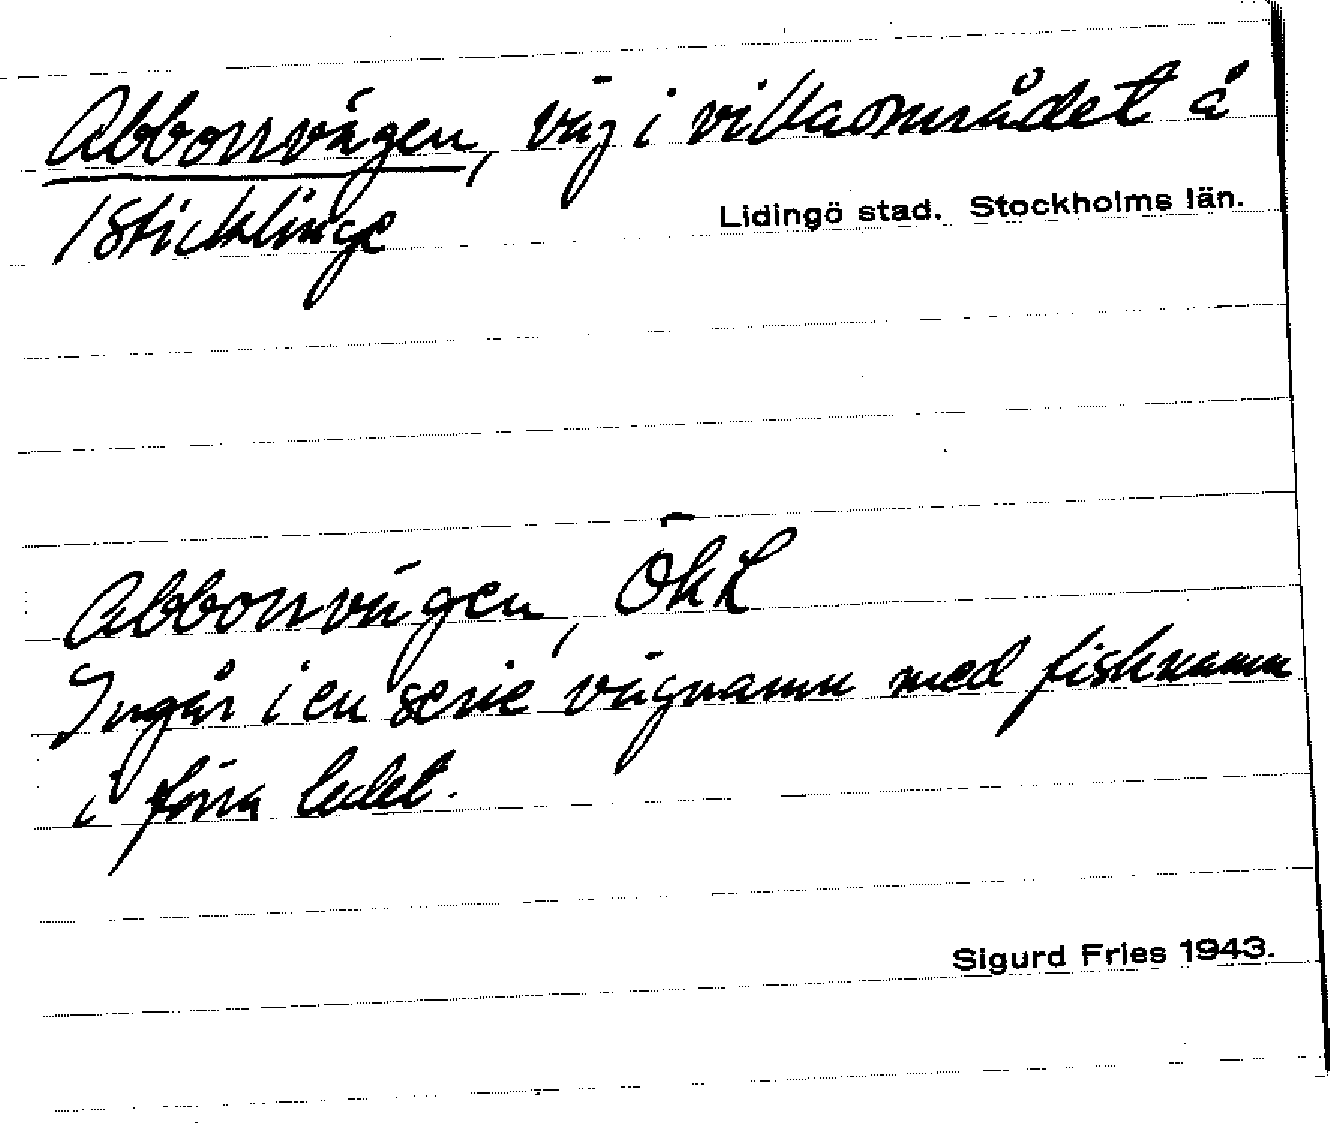 Abborrvägen, väg i villaområdet å
/Sticklinge
Lidingö stad. Stockholms län.
Abborrvägen, ÖKL
Ingår i en serie vägnamn med fisknamn
i förra ledet.
Sigurd Fries 1943.